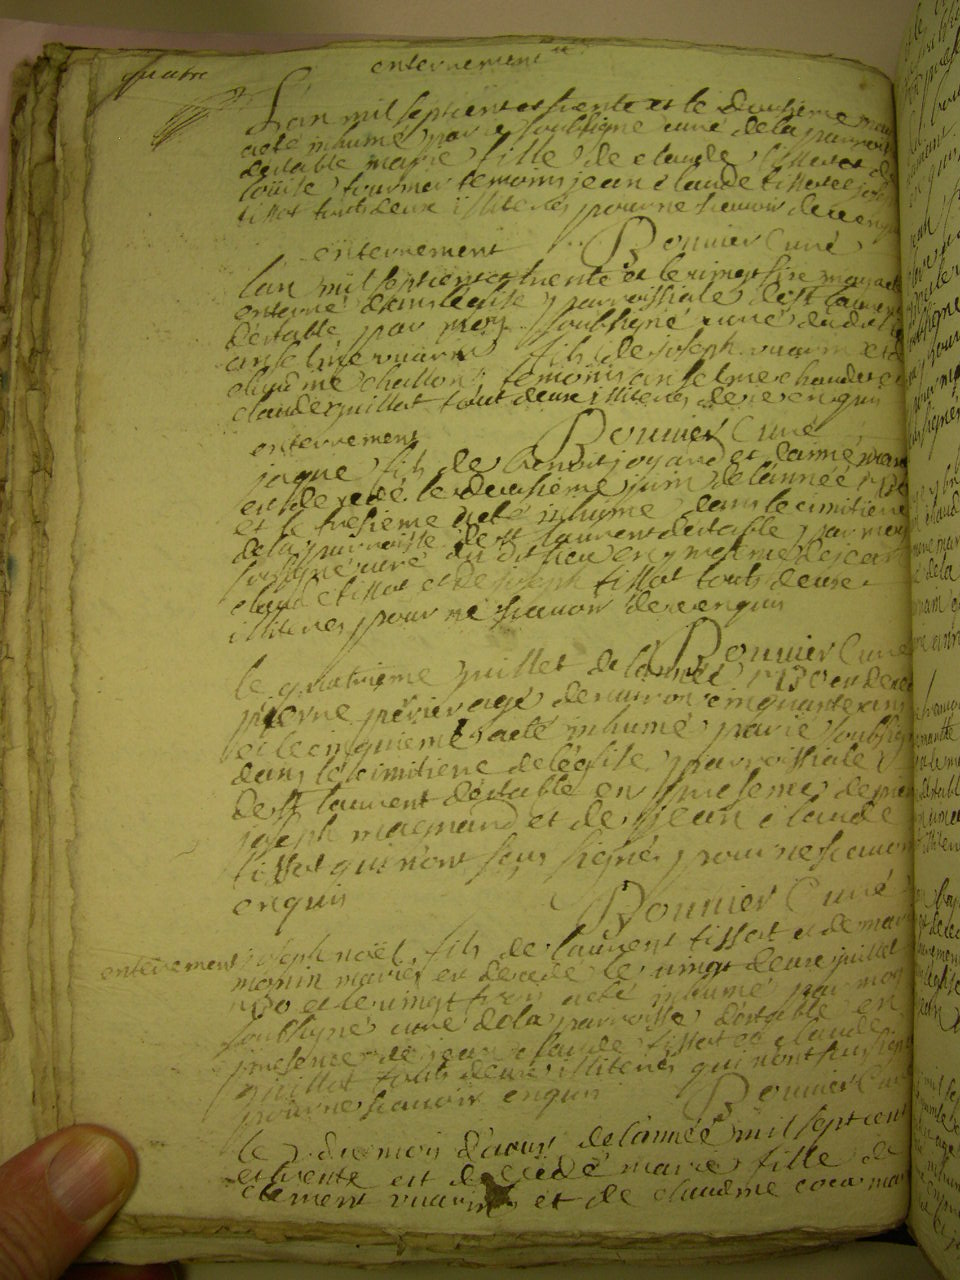 quatre
enterrement
Lan mil septcent et trente et le deusieme
aeté inhumé par ie soubsigné curé dela parroisse
destable marie fille de claude tissot et de
louise fournier temoins jean claude tissot et joseph
tissot touts deux illiteres pour ne scauoir de ce enquis
Bonnier Curé
enterrement
lan mil septcent et trente et le vingt sixe may aeté
enterré dans leglise parroissiale de st laurent
destable par moy soubsigné curé dudit
anselme vuarin fils de joseph vuarin et de
claudine challon temoins anselme chaudet et
claude guillot tout deux illiteres de ce enquis
Bonnier Curé
enterrement
jaque fils de benoit joyard et daimé
est decedé le deusieme juin de lannéé 1730
et le tresieme aeté inhumé dans le cimitiere
dela parroisse de st laurent destable par moy
soubsigné curé du dit lieu en presence de jean
claude tissot et de joseph tissot touts deux
illiteres pour ne scauoir de ce enquis
Bonnier Curé
le quatrieme juillet de lannéé 1730 est decedé
pierre perier agé denuiron cinquante ans
et le cinquieme aeté inhumé par ie soubsigné
dans le cimitiere deleglise parroissiale
de st laurent destable en presence de
joseph magnand et de jean claude
tissot qui nont sous signés pour ne scauoir
enquis
Bonnier Curé
enterrement
joseph noël fils de laurent tissot et de
monin mariés est decedé le vingt deux juillet
1730 et le vingt trois aeté inhumé par moy
soubsigné curé dela parroisse destable en
presence de jean claude tissot et claude
guillot touts deux illiteres qui nont sousigné
pour ne scauoir enquis
Bonnier Curé
le du mois daoust delannéé mil septcent
et trente est decedé marie fille de
clement vuarin et de claudine